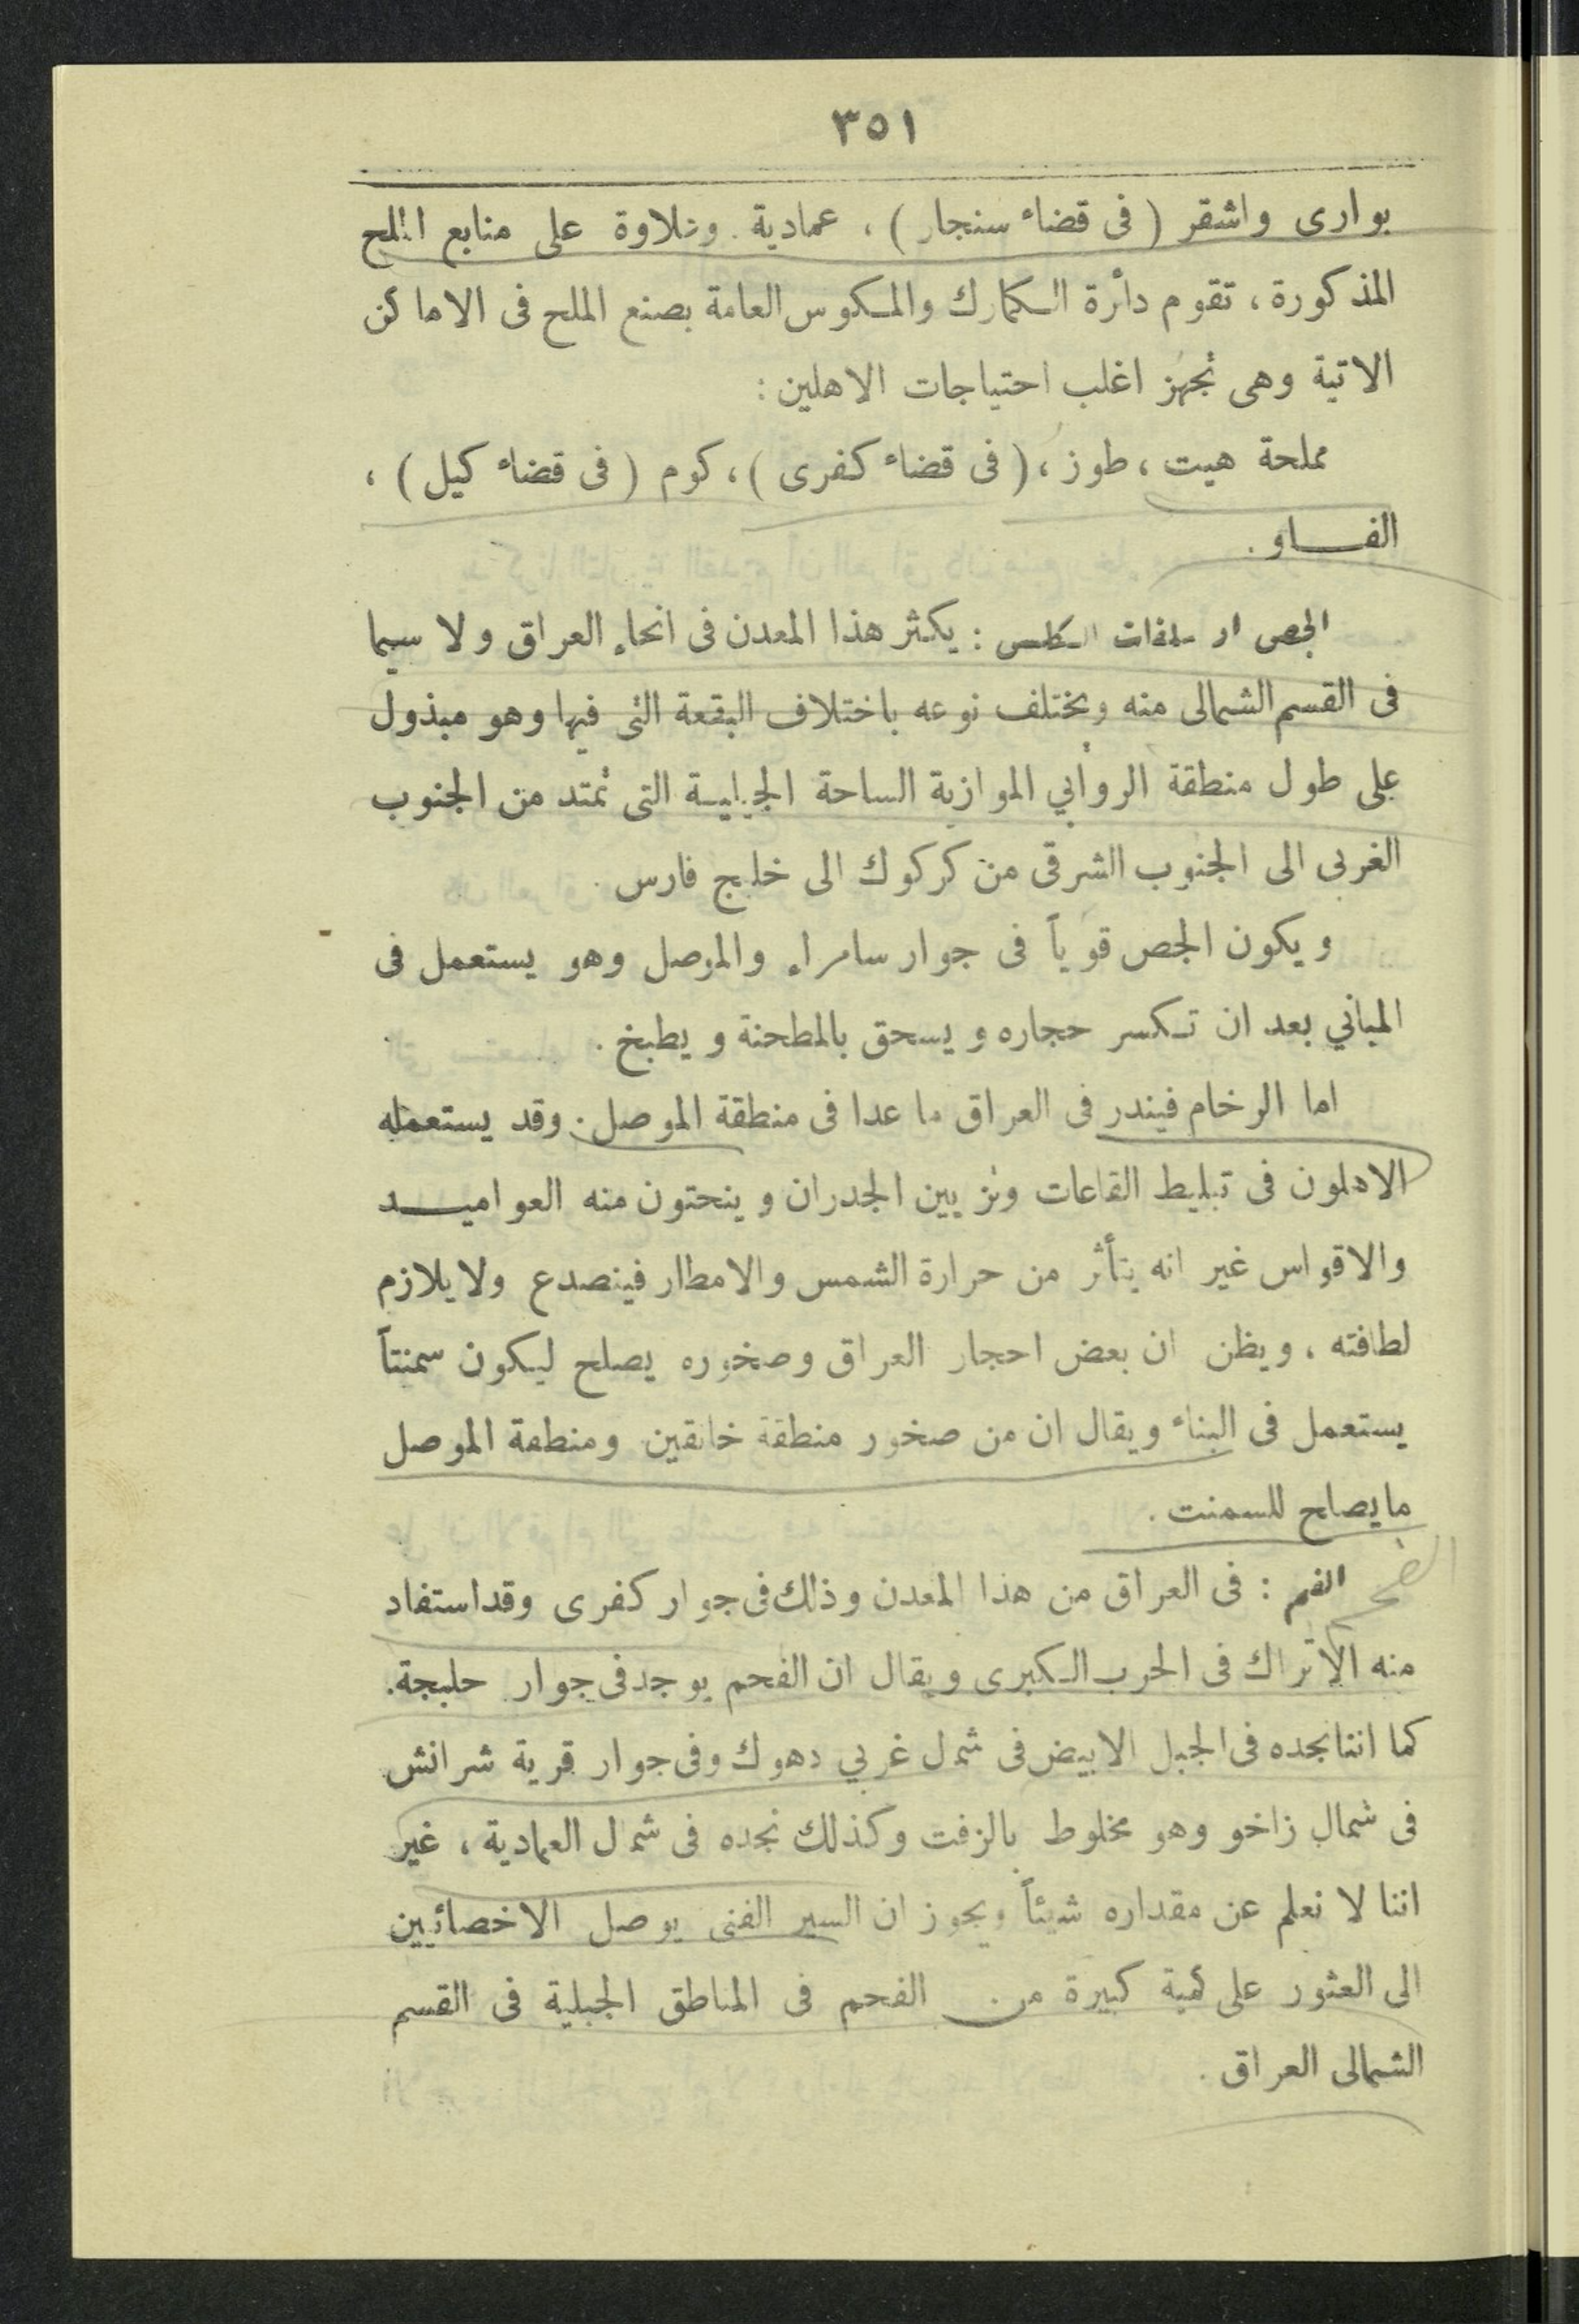 ٣٥١
بوارى واشقر (فى قضاء سنجار) ، عمادية . وعلاوة على منابع الملح
المذكورة ، تقوم دائرة الكمارك والمكوس العامة بصنع الملح فى الاماكن
الاتية وهى تجهز اغلب احتياجات الاهلين :
مملحة هيت ، طوز ، (فى قضاء كفرى) ، كوم (فى قضاء كيل) ،
الفاو .
الجص او سلفات الكلس : يكثر هذا المعدن فى انحاء العراق ولا سيما
فى القسم الشمالى منه ويختلف نوعه باختلاف البقعة التى فيها وهو مبذول
على طول منطقة الروابي الموازية الساحة الجبلية التى تمتد من الجنوب
الغربى الى الجنوب الشرقى من كركوك الى خليج فارس .
ويكون الجص قوياً فى جوار سامراء والموصل وهو يستعمل فى
المباني بعد ان تكسر حجاره ويسحق بالمطحنة ويطبخ .
اما الرخام فيندر فى العراق ما عدا فى منطقة الموصل . وقد يستعمله
الاهلون فى تبليط القاعات وتزيين الجدران وينحتون منه العواميد
والاقواس غير انه يتأثر من حرارة الشمس والامطار فينصدع ولا يلازم
لطافته ، ويظن ان بعض احجار العراق وصخوره يصلح ليكون سمنتاً
يستعمل فى البناء ويقال ان من صخور منطقة خانقين ومنطقة الموصل
ما يصلح للسمنت .
الفحم
الفم : فى العراق من هذا المعدن وذلك فى جوار كفرى وقد استفاد
منه الاتراك فى الحرب الكبرى ويقال ان الفحم يوجد فى جوار حلبجة .
كما اننا نجده فى الجبل الابيض فى شمال غربي دهوك وفى جوار قرية شرانش
فى شمال زاخو وهو مخلوط بالزفت وكذلك نجده فى شمال العمادية ، غير
اننا لا نعلم عن مقداره شيئاً ويجوز ان السير الفنى يوصل الاخصائيين
الى العثور على كمية كبيرة من الفحم فى المناطق الجبلية فى القسم
الشمالى العراق .